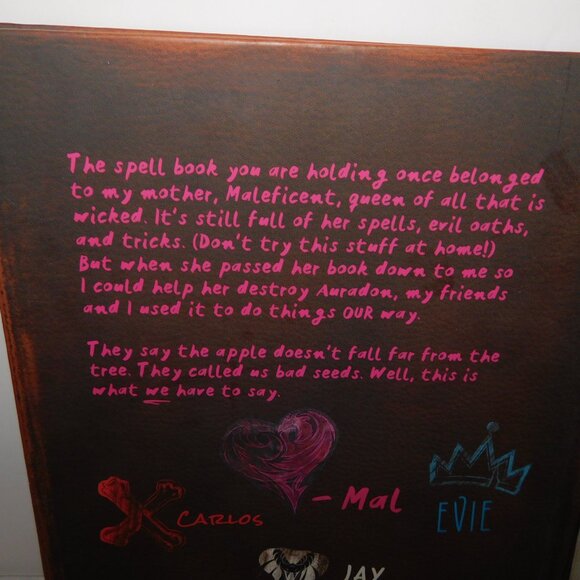 The spell book you are holding once belonged
to my mother, Maleficent, queen of all that is
wicked. It's still full of her spells, evil oaths,
and tricks. (Don't try this stuff at home!)
But when she passed her book down to me so
I could help her destroy Auradon, my friends
and I used it to do things OUR way.
They say the apple doesn't fall far from the
tree. They called us bad seeds. Well, this is
what we have to say.
– Mal
CARLOS
EVIE
JAY